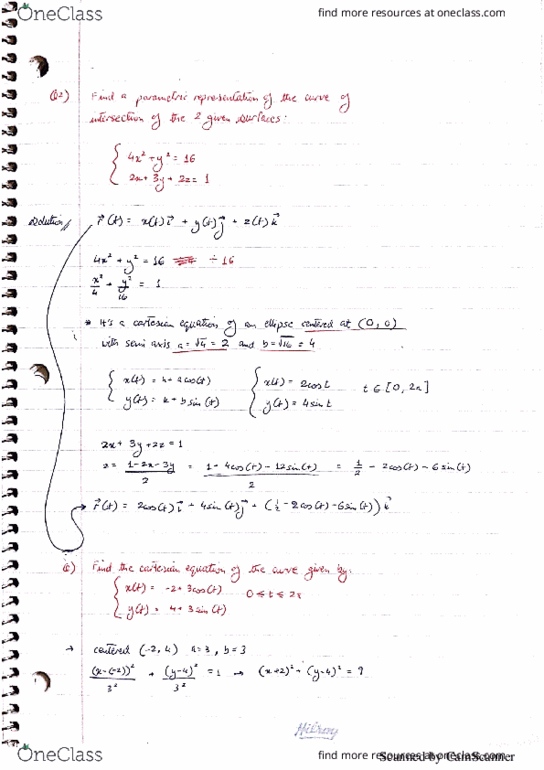 OneClass
find more resources at oneclass.com
Q2) Find a parametric representation of the curve of
intersection of the 2 given surfaces:
4x² + y² = 16
2x + 3y + 2z = 1
Solution r⃗(t) = x(t) i⃗ + y(t) j⃗ + z(t) k⃗
4x² + y² = 16 ÷ 16
x²/4 + y²/16 = 1
* It's a cartesian equation of an ellipse centered at (0, 0)
with semi axis a = √4 = 2 and b = √16 = 4
x(t) = h + a cos(t) x(t) = 2cos t t ∈ [0, 2π]
y(t) = k + b sin(t) y(t) = 4 sin t
2x + 3y + 2z = 1
z = (1 - 2x - 3y)/2 = (1 - 4cos(t) - 12sin(t))/2 = 1/2 - 2cos(t) - 6sin(t)
r⃗(t) = 2cos(t) i⃗ + 4sin(t) j⃗ + (1/2 - 2cos(t) - 6sin(t)) k⃗
Find the cartesian equation of the curve given by:
x(t) = -2 + 3cos(t) 0 ≤ t ≤ 2π
y(t) = 4 + 3 sin(t)
→ centered (-2, 4) a = 3, b = 3
(x-(-2))²/3² + (y-4)²/3² = 1 → (x+2)² + (y-4)² = 9
OneClass
find more resources at oneclass.com
Scanned by CamScanner